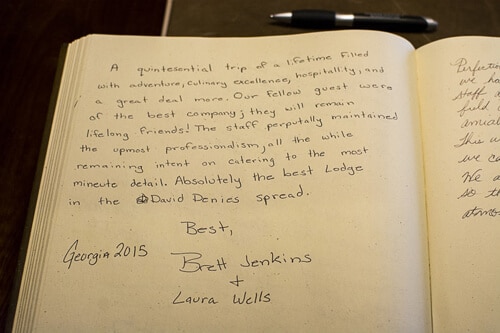 A quintesential trip of a lifetime filled
with adventure, culinary excellence, hospitallity, and
a great deal more. Our fellow guest were
of the best company; they will remain
lifelong friends! The staff perputally maintained
the upmost professionalism, all the while
remaining intent on catering to the most
minute detail. Absolutely the best Lodge
in the David Denies spread.
Best,
Georgia 2015
Brett Jenkins
+
Laura Wells
Perfection
we
staff
field
This
we
We
so